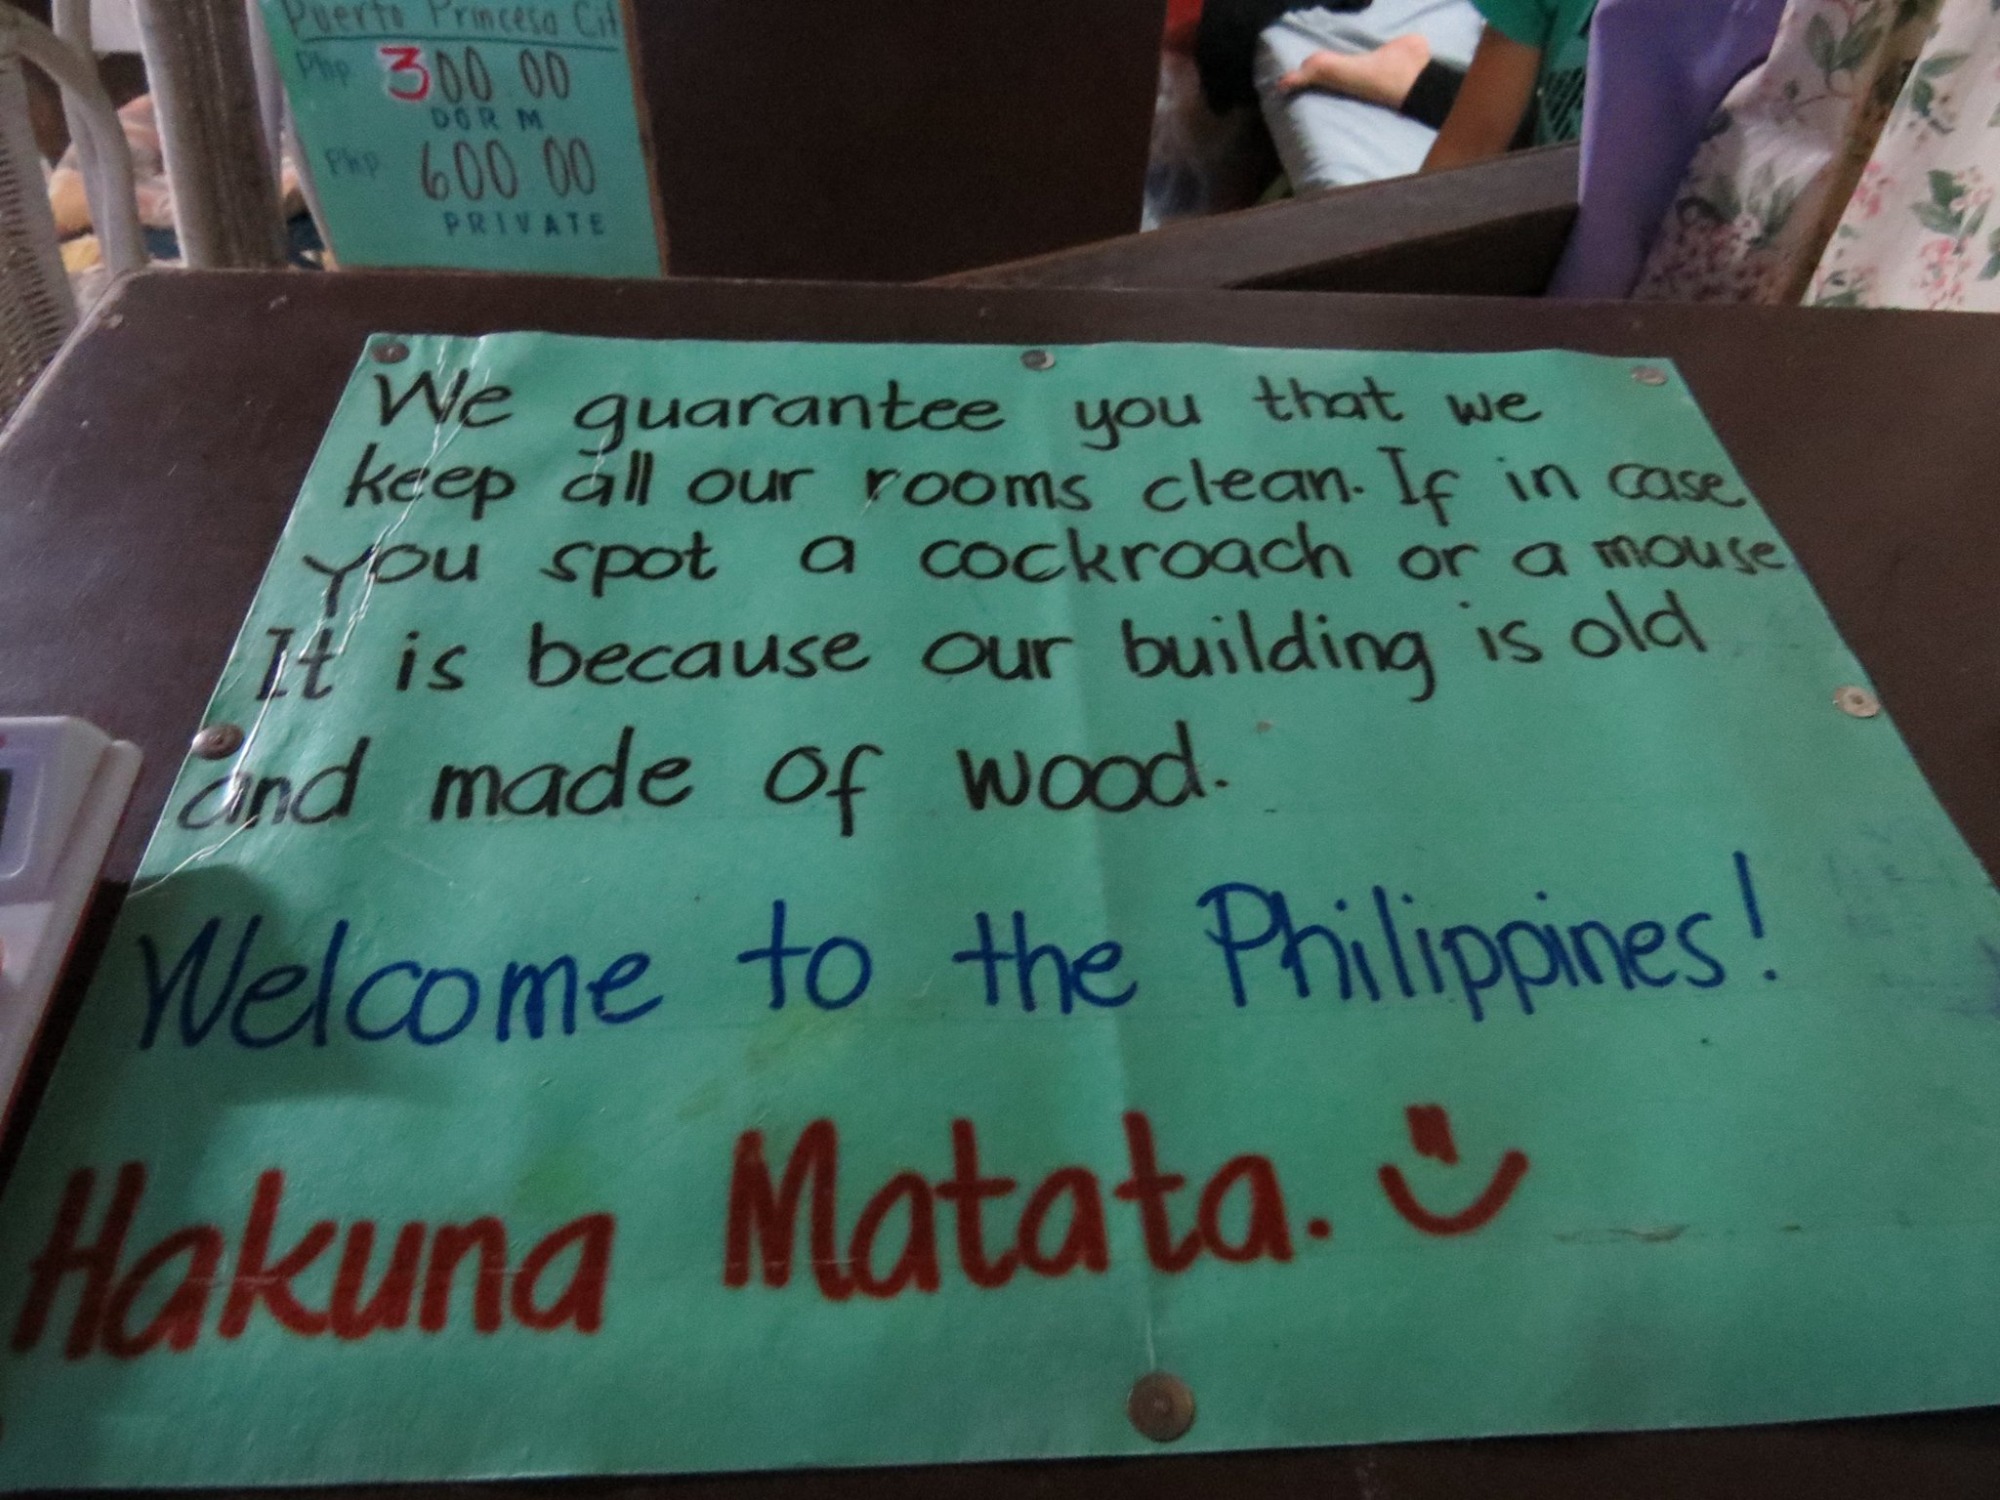 Puerto Princesa Cit
Php 300 00
DORM
Php 600 00
PRIVATE
We guarantee you that we
keep all our rooms clean. If in case
you spot a cockroach or a mouse
It is because our building is old
and made of wood.
Welcome to the Philippines!
Hakuna Matata.